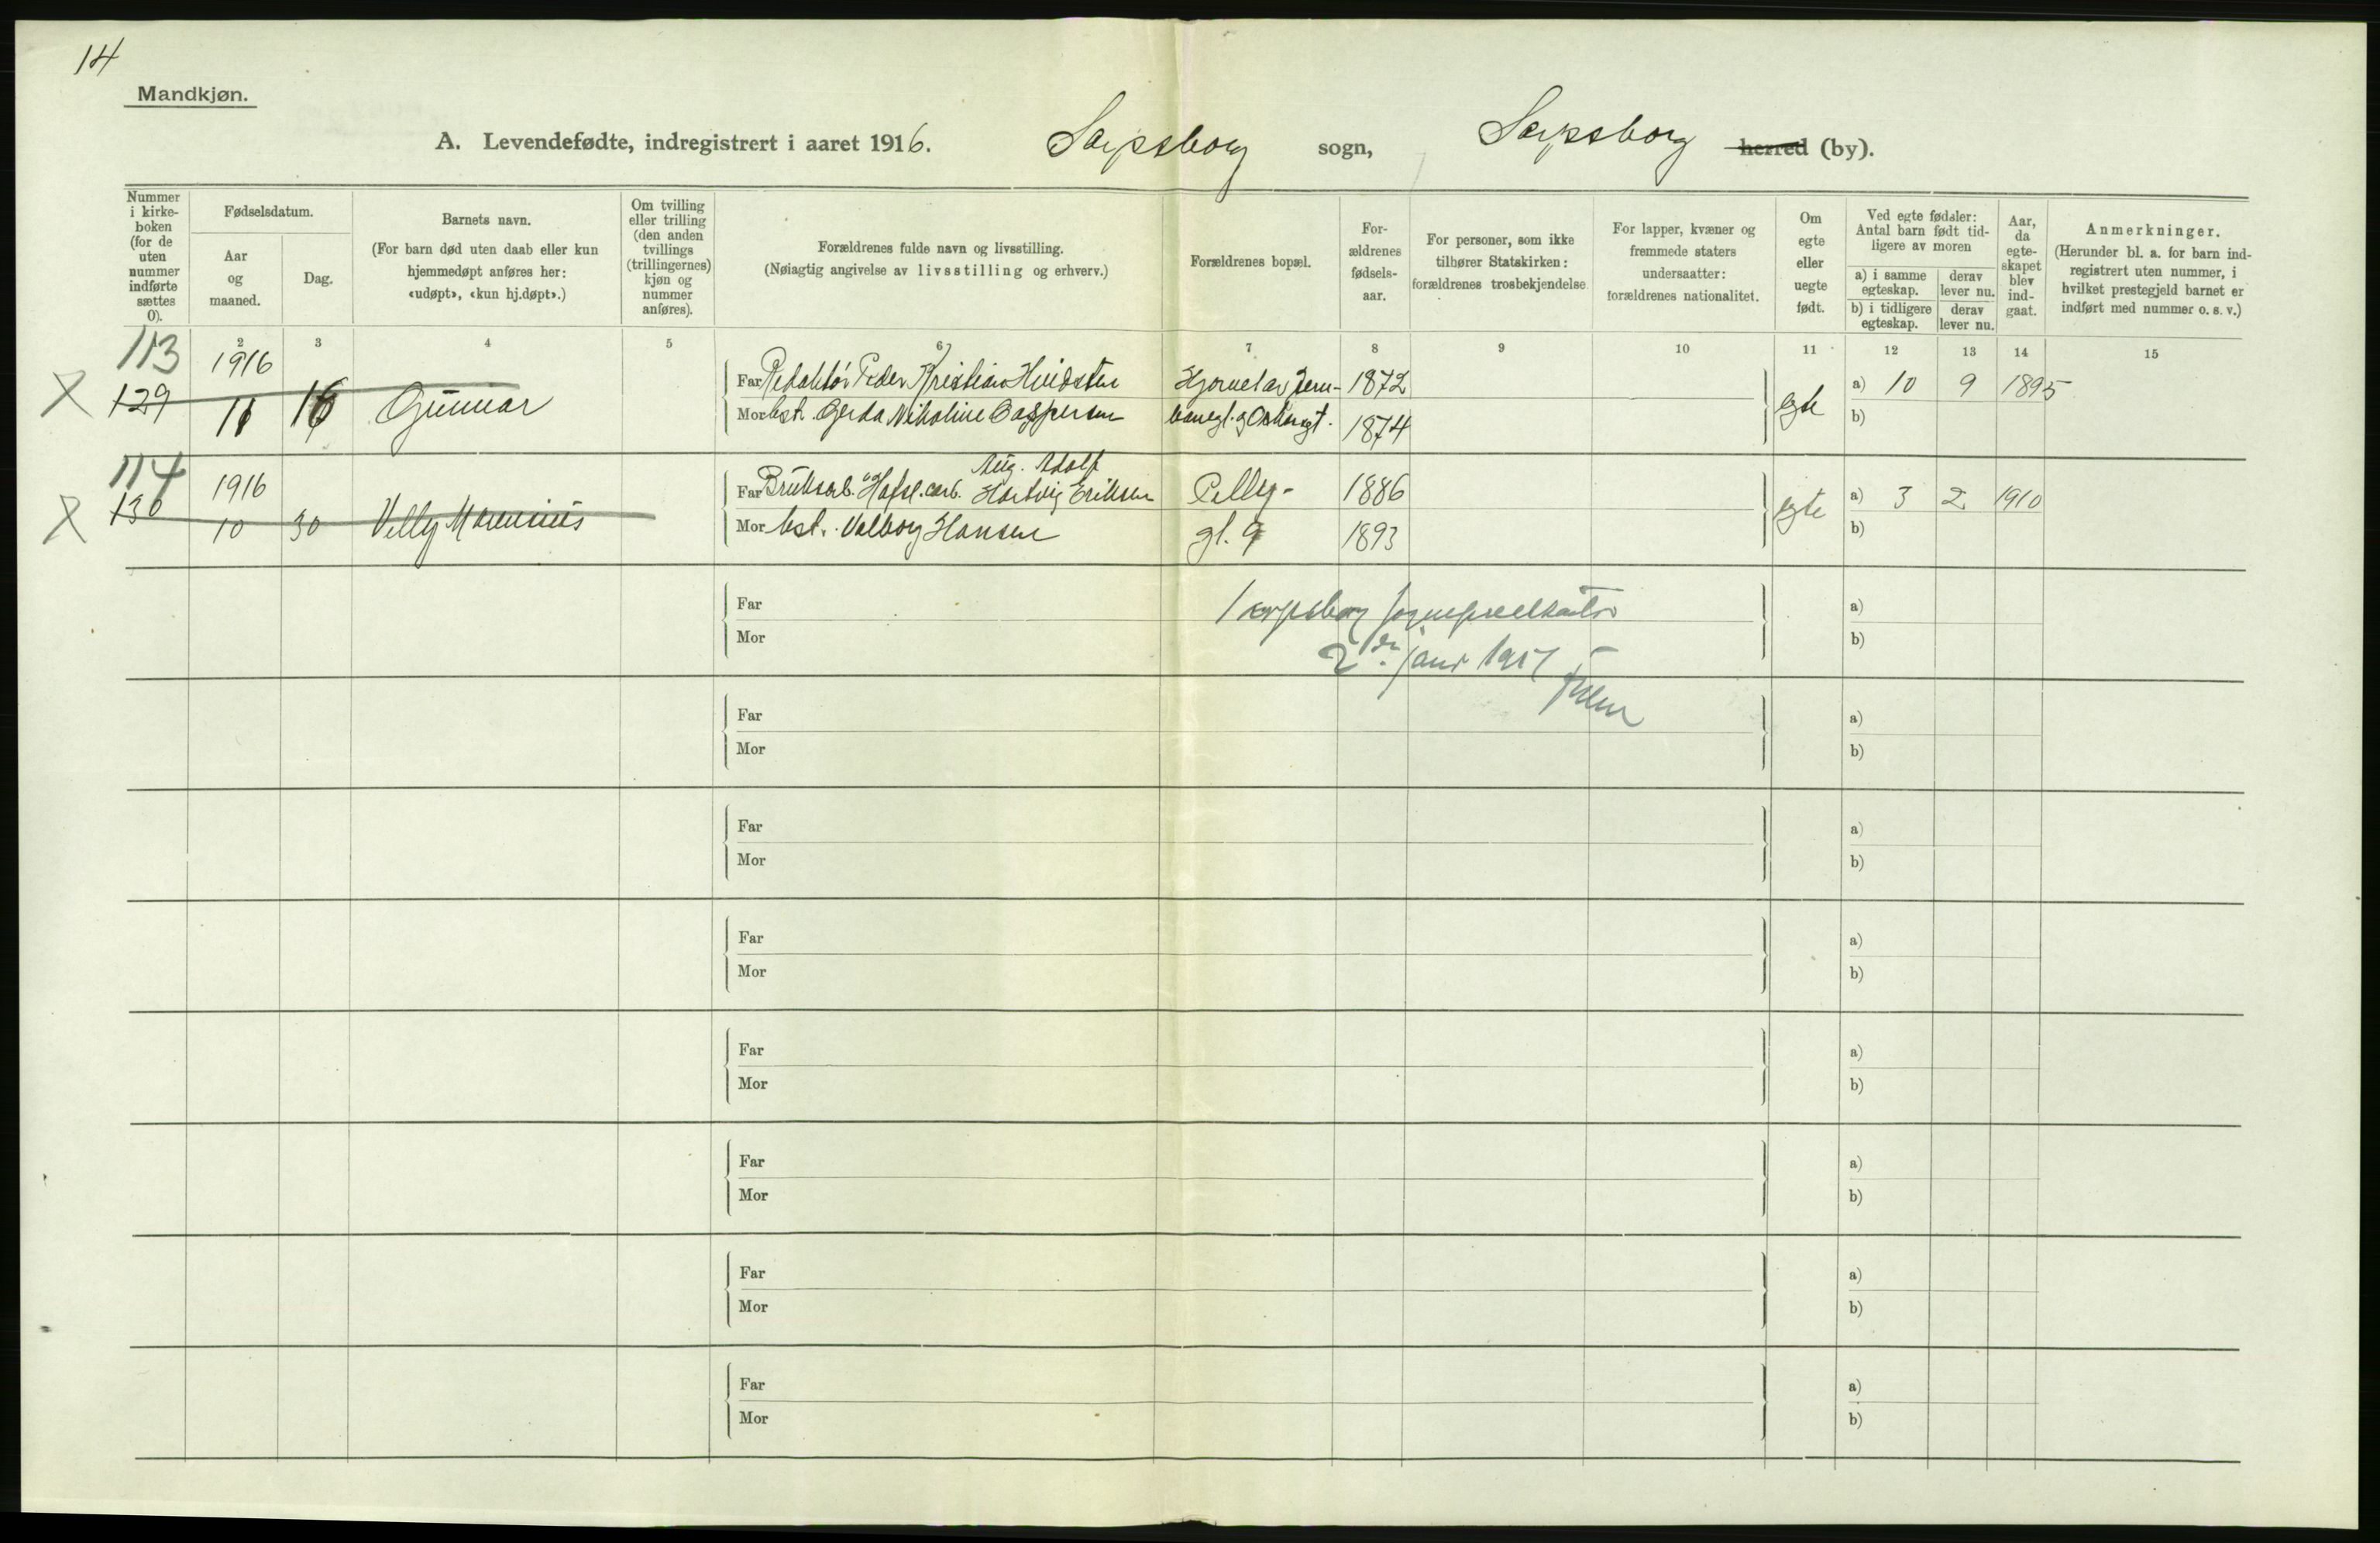 14
Mandkjøn.
A. Levendefødte, indregistrert i aaret 1916. Sarpsborg sogn, Sarpsborg herred (by).
Nummer i kirkeboken (for de uten nummer indførte sættes 0).
Fødselsdatum.
Aar og maaned.
Dag.
Barnets navn.
(For barn død uten daab eller kun hjemmedøpt anføres her: «udøpt», «kun hj.døpt».)
Om tvilling eller trilling (den anden tvillings (trillingernes) kjøn og nummer anføres).
Forældrenes fulde navn og livsstilling.
(Nøiagtig angivelse av livsstilling og erhverv.)
Forældrenes bopæl.
For-
ældrenes
fødsels-
aar.
For personer, som ikke
tilhører Statskirken:
forældrenes trosbekjendelse
For lapper, kvæner og
fremmede staters
undersaatter:
forældrenes nationalitet.
Om
egte
eller
uegte
født.
Ved egte fødsler:
Antal barn født tid-
ligere av moren
a) i samme egteskap.
derav lever nu.
b) i tidligere egteskap.
derav lever nu.
Aar,
da
egte-
skapet
blev
ind-
gaat.
Anmerkninger.
(Herunder bl. a. for barn ind-
registrert uten nummer, i
hvilket prestegjeld barnet er
indført med nummer o. s. v.)
2 3 4 5 6 7 8 9 10 11 12 13 14 15
113
X 129 1916 11 16 Gunnar
Far Redaktør Peder Kristian 1872
Mor hst. Gerda Nikoline Caspersen 1874
Hjørnet av Jern-
banegt. og
egte a) 10 9 1895
b)
114
X 130 1916 10 30 Villy Marenius
Aug. Adolf
Far Hafsl. carb. Hartvig Eriksen 1886
Mor hst. Valborg Hansen 1893
Pelly-
gt. 9
egte a) 3 2 1910
b)
Far a)
Mor b)
Sarpsborg sogneprestkontor
2den janr 1917
Far a)
Mor b)
Far a)
Mor b)
Far a)
Mor b)
Far a)
Mor b)
Far a)
Mor b)
Far a)
Mor b)
Far a)
Mor b)